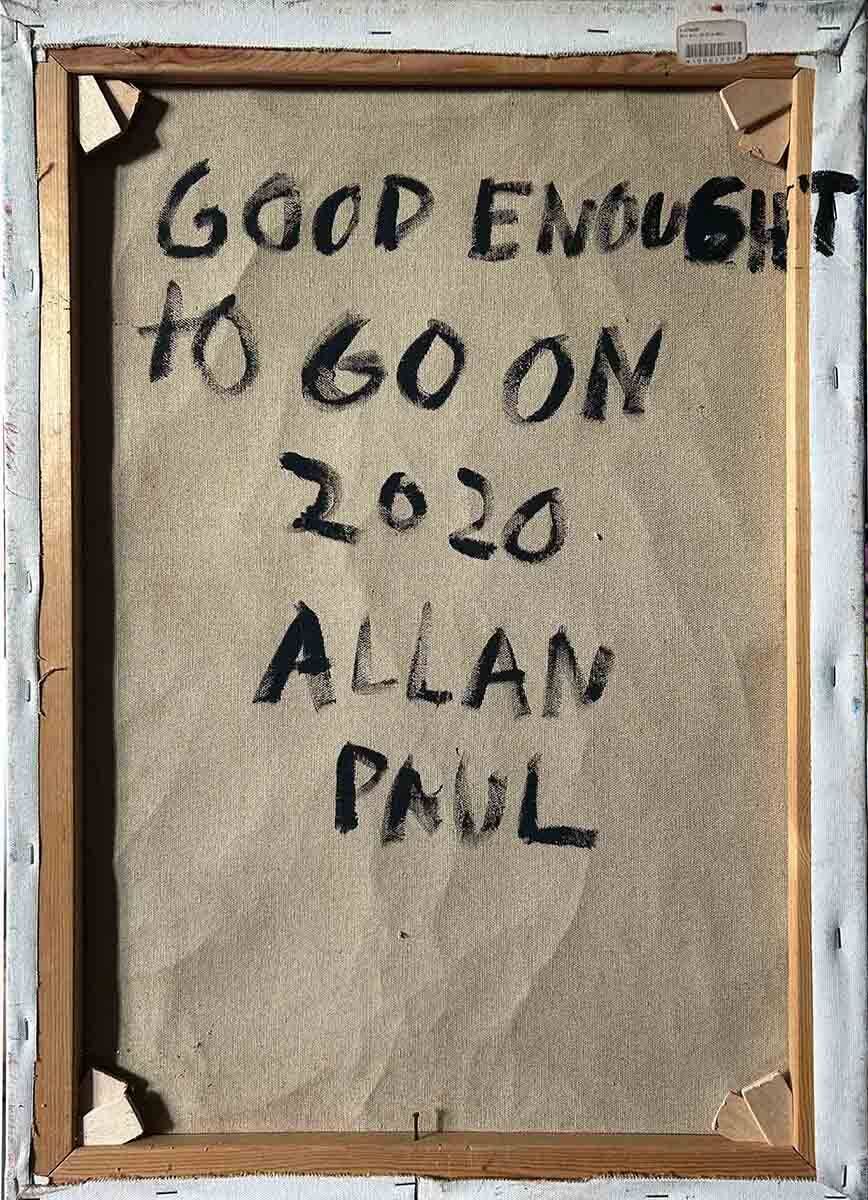 GOOD ENOUGHT
to GO ON
2020
ALLAN
PAUL